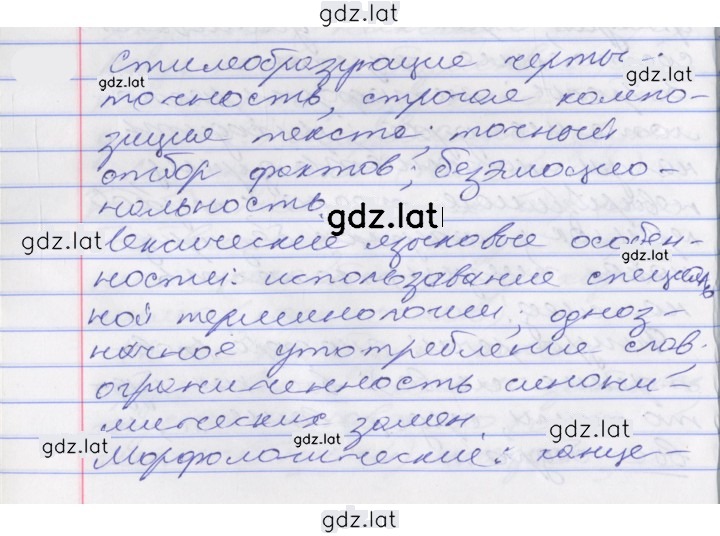 gdz.lat
Стилеобразующие черты:
gdz.lat
gdz.lat
точность, строгая компо-
зиция текста; точный
отбор фактов; безэмоцио-
нальность.
gdz.lat
gdz.lat
gdz.lat
Лексические языковые особен-
ности: использавание специаль
ной терминологии, одноз-
начное употребление слов.
ограниченность синони-
мических замен.
gdz.lat
gdz.lat
gdz.lat
Морфологические: канце-
gdz.lat